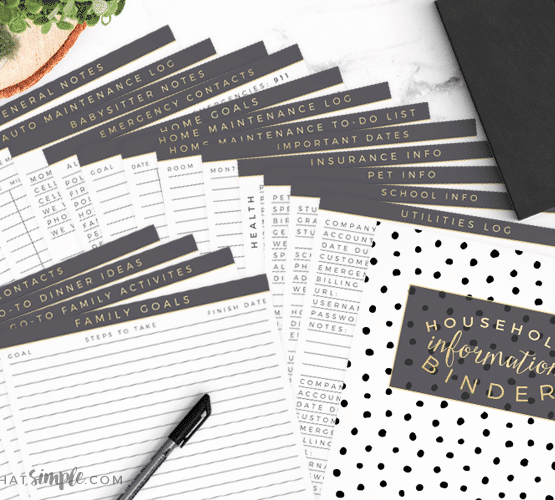 GENERAL NOTES
AUTO MAINTENANCE LOG
BABYSITTER NOTES
EMERGENCY CONTACTS
EMERGENCIES: 911
HOME GOALS
HOME MAINTENANCE LOG
HOME MAINTENANCE TO-DO LIST
IMPORTANT DATES
INSURANCE INFO
PET INFO
SCHOOL INFO
UTILITIES LOG
MI
MOM
CELL
WE
PHO
WE
GOAL
DATE
ROOM
MONT
HEALTH
COMPANY
ACCOUN
DATE DU
CUSTOME
EMERGEN
BILLING
URL:
USERNA
PASSWOR
NOTES:
COMPANY
ACCOUN
DATE D
CUSTOM
EMERGE
BILLING
URL:
USERN
PASSW
CONTACTS
GO-TO DINNER IDEAS
GO-TO FAMILY ACTIVITES
FAMILY GOALS
GOAL STEPS TO TAKE FINISH DATE
HOUSEHOL
information
BINDER
HATSimple.COM